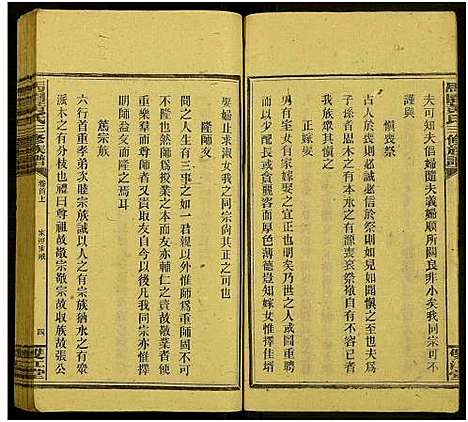 夫可知夫倡婦隨夫義婦順所關良非小矣我同宗可不
謹與
慎喪祭
古人於喪必誠必信於祭則如見如聞慎之至也夫為
子孫者思木之有本念水之有源喪哀祭敬自有不容
正嫁娶
男有室女有家嫁娶之宜正也明矣乃世之人或圖重聘
或配高門長成貪麗咨而不思有厚薄德豈知嫁女惟擇佳壻
娶婦止求淑女我之同宗尚其正之可也
隆師友
間之人生有三事之如一君親以外惟師爲重師固不可
不隆也然師爲授業之本而友亦輔仁之資故敬業者使
重樂羣而親師者又貴取友自今以後凡我同宗亦惟擇
明師益友而隆之焉耳
篤宗族
六行首重孝弟次睦宗族誠以人之有宗族猶水之有衆
派木之有分枝也禮曰尊祖故敬宗敬宗故收族故張公
三修族譜
卷首上
家訓家戒
四